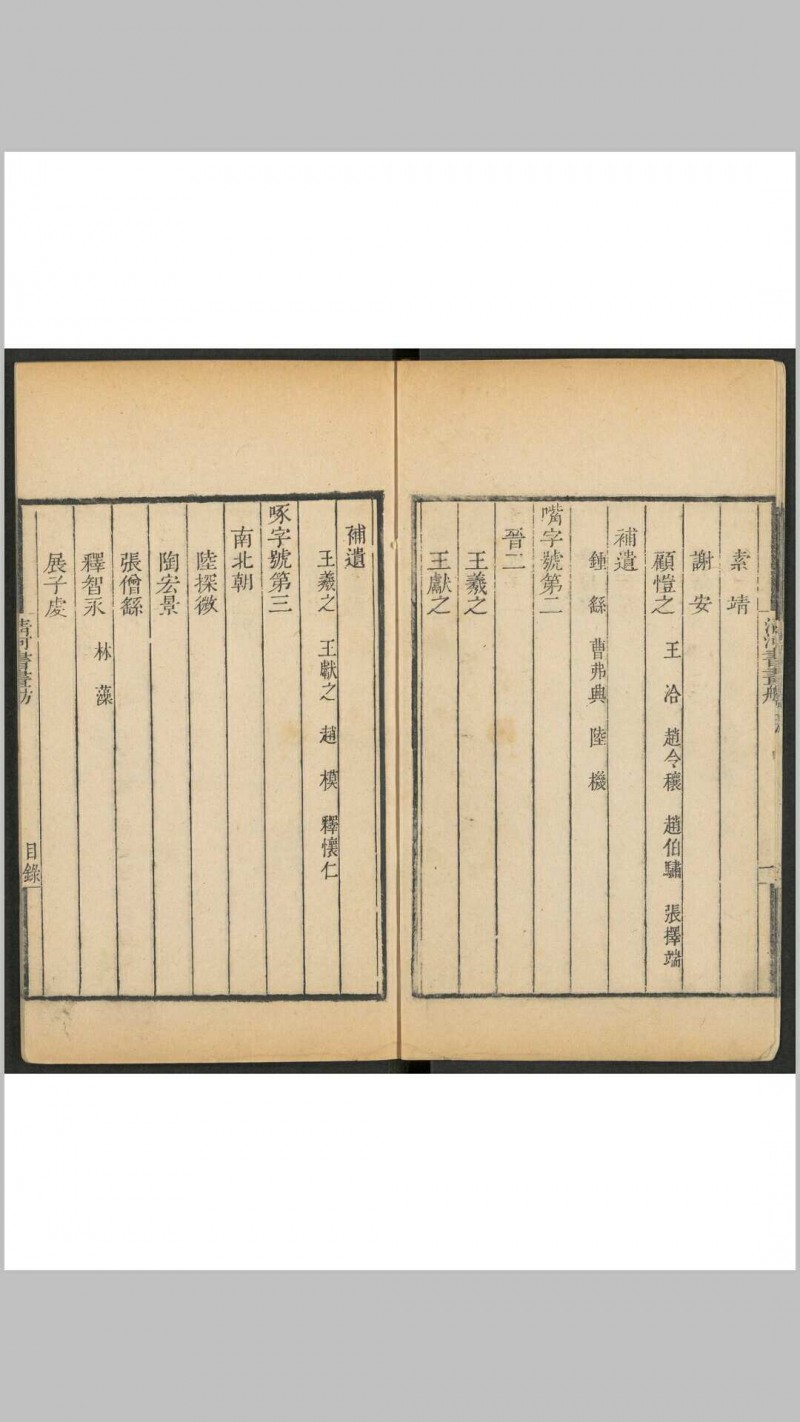 清河書畫舫
一
素靖
謝安
顧愷之 王洽 趙令穰 趙伯驌 張擇端
補遺
鍾繇 曹弗興 陸機
嘴字號第二
晉二
王羲之
王獻之
補遺
王羲之 王獻之 趙模 釋懷仁
啄字號第三
南北朝
陸探微
陶宏景
張僧繇
釋智永 林藻
展子虔
清河書畫舫
目錄